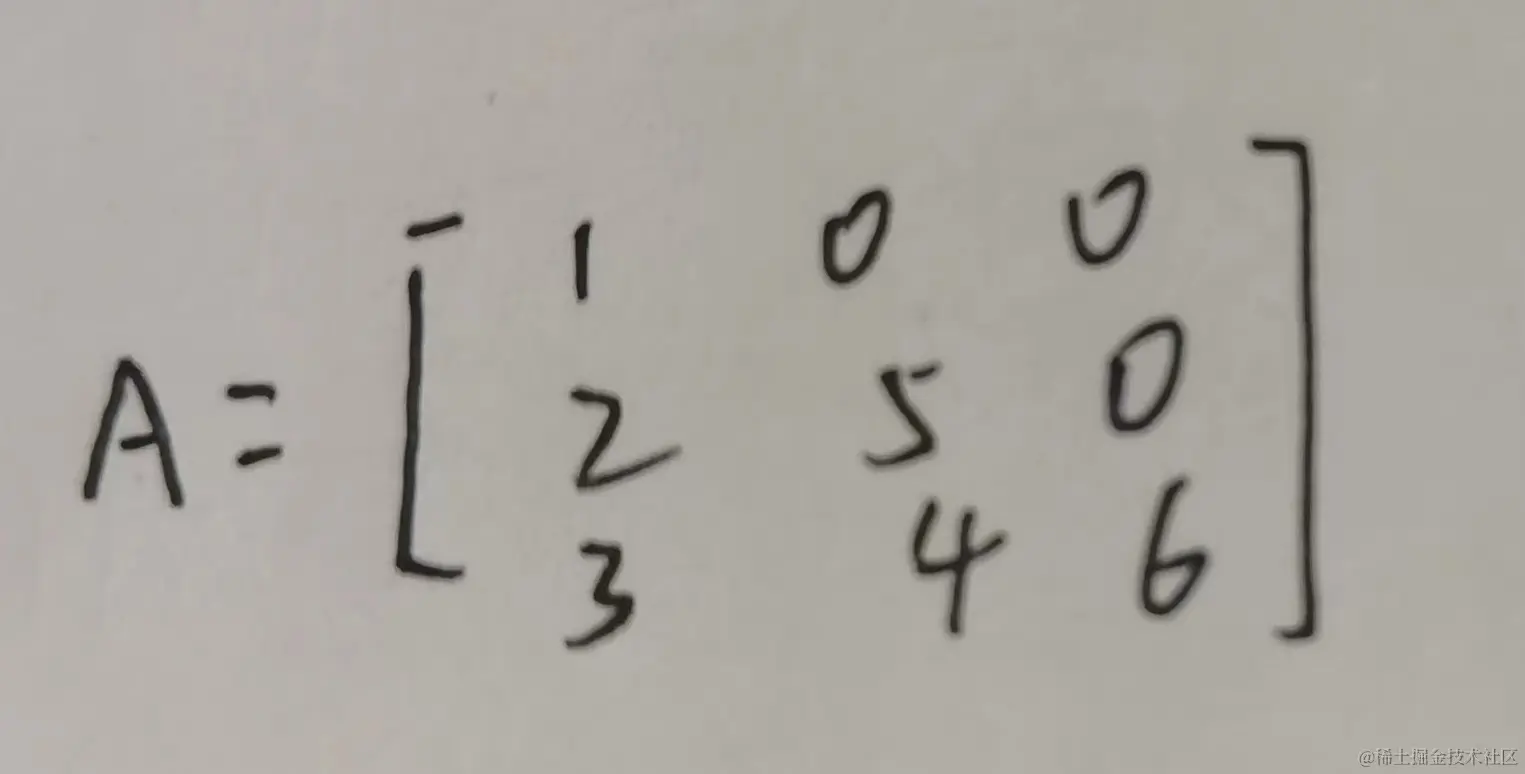 A = [ 1 0 0
2 5 0
3 4 6 ]
@稀土掘金技术社区